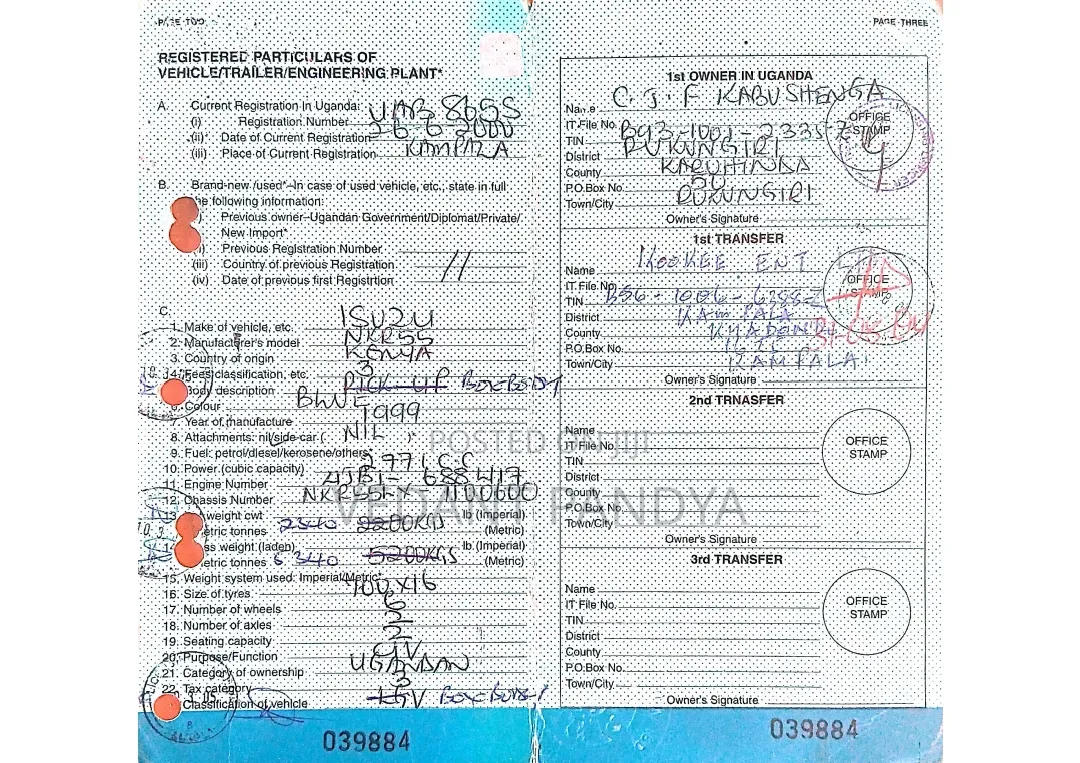 PAGE TWO
REGISTERED PARTICULARS OF
VEHICLE/TRAILER/ENGINEERING PLANT*
A. Current Registration in Uganda:
(i) Registration Number UAB 865S
(ii) Date of Current Registration 26-6-2000
(iii) Place of Current Registration KAMPALA
B. Brand-new /used*–In case of used vehicle, etc., state in full
he following information:
Previous owner–Ugandan Government/Diplomat/Private/
New Import*
Previous Registration Number
(iii) Country of previous Registration
(iv) Date of previous first Registrtion
C.
1. Make of vehicle, etc. ISUZU
2. Manufacturer's model NKR55
3. Country of origin KENYA
4. Fees classification, etc. 3
Body description PICK-UP BOX BODY
6. Colour BLUE
7. Year of manufacture 1999
8. Attachments: nil/side-car ( NIL )
9. Fuel: petrol/diesel/kerosene/others*
10. Power (cubic capacity) 2771 CC
11. Engine Number 4JB1- 688417
12. Chassis Number 1100600
13. weight cwt lb (Imperial)
etric tonnes 2340 2200KGS (Metric)
14. ss weight (laden) lb (Imperial)
etric tonnes 5340 5200KGS (Metric)
15. Weight system used: Imperial/Metric*
16. Size of tyres 700X16
17. Number of wheels 6
18. Number of axles 2
19. Seating capacity 2
20. Purpose/Function GV
21. Category of ownership UGANDAN
22. Tax category 3
Classification of vehicle LGV BOX BODY
039884
PAGE THREE
1st OWNER IN UGANDA
Name C. J. F KABUSHENGA
IT File No.
TIN B93-1001-2335-Z
District RUKUNGIRI
County KARUHINDA
P.O.Box No. 50
Town/City RUKUNGIRI
Owner's Signature
OFFICE
STAMP
1st TRANSFER
Name KOOKEE ENT
IT File No.
TIN B56-1006-6388Z
District KAMPALA
County KYADONDO
P.O.Box No.
Town/City KAMPALA
Owner's Signature
OFFICE
STAMP
2nd TRNASFER
Name
IT File No.
TIN
District
County
P.O.Box No.
Town/City
Owner's Signature
OFFICE
STAMP
3rd TRANSFER
Name
IT File No.
TIN
District
County
P.O.Box No.
Town/City
Owner's Signature
OFFICE
STAMP
039884
POSTED ON JIJI
VEDANT PANDYA